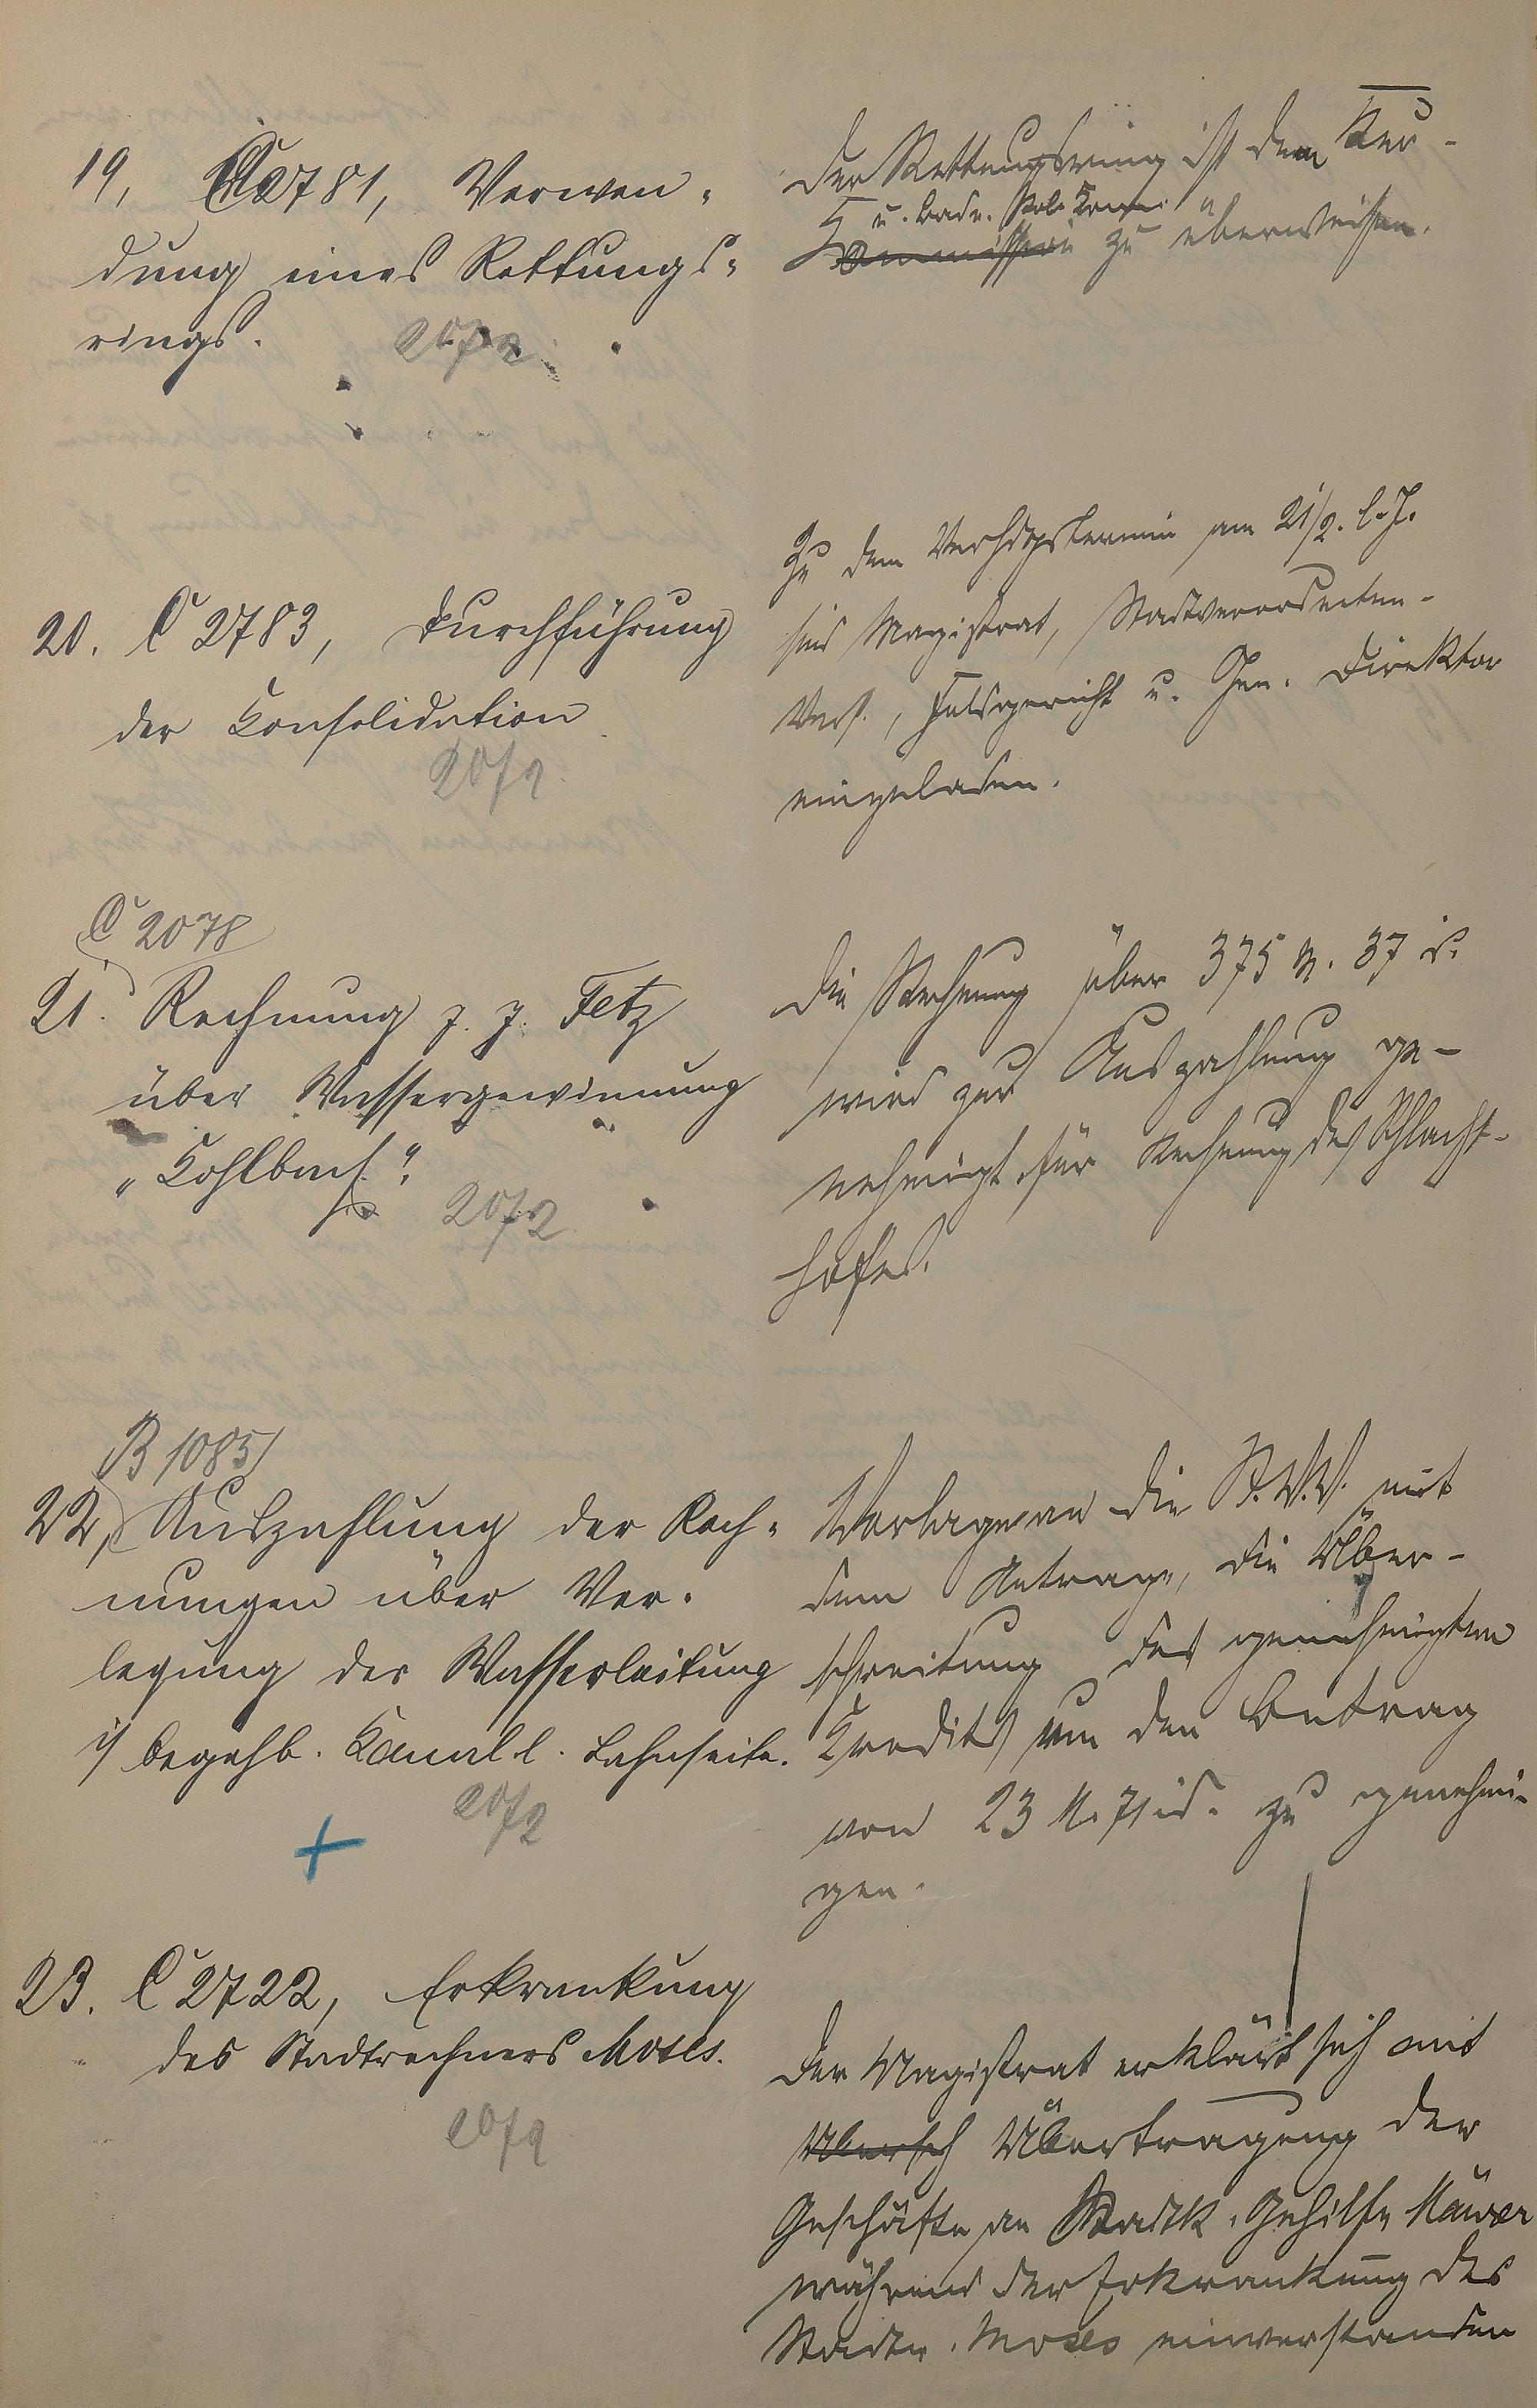 19, C 2781, Verwen-
dung eines Rettungs-
rings.
20/2
Der Rettungsring ist dem Kur-
u. Bade. Pol. Komm.
Kommission zu überweisen.
20. C 2783, Durchführung
der Consolidation
20/2.
Zu dem Verhdgstermin am 21/2. l. J.
sind Magistrat, Stadtverordneten-
Vers., Feldgericht u. Gen. Direktor
einzuladen.
C 2078
21. Rechnung J. J. Fetz
über Wassergewinnung
„Kohlbach“.
20/2
Die Rechnung über 375 M. 37 d.
wird zur Auszahlung ge-
nehmigt für Rechnung des Schlacht-
hofes.
B 1085
22, Auszahlung der Rech-
nungen über Ver-
legung der Wasserleitung
i/ begehb. Canal l. Lahnseite.
20/2
Vorlage an die St. V. V. mit
dem Antrage, die Über-
schreitung des genehmigten
Kredits um den Betrag
von 23 M. 71 d. zu genehmi-
gen.
23. C 2722, Erkrankung
des Stadtrechners Moses.
20/2
Der Magistrat erklärt sich mit
Übersch Übertragung der
Geschäfte an Stadtk. Gehilfe Käwer
während der Erkrankung des
Stadtr. Moses einverstanden